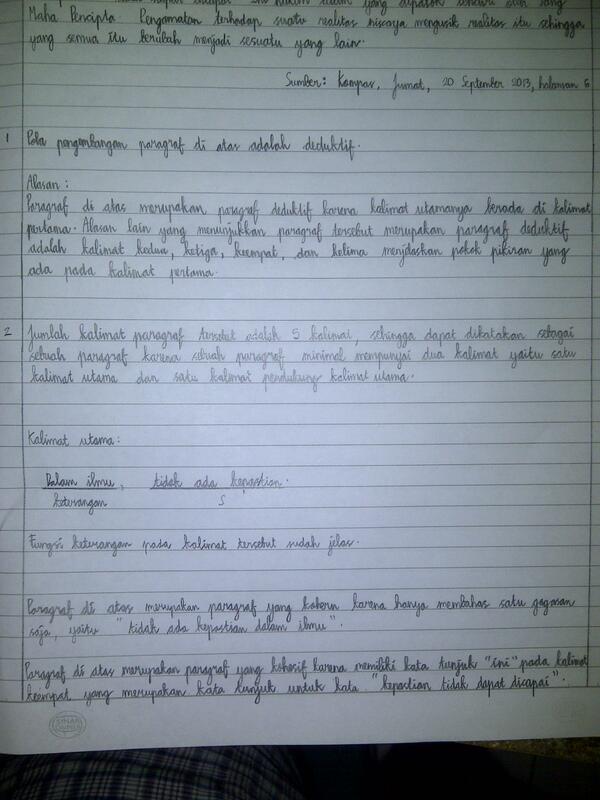 yang dipatok
Maha Pencipta. Pengamatan terhadap suatu realitas niscaya mengusik realitas itu sehingga
yang semua itu berubah menjadi sesuatu yang lain.
Sumber: Kompas, Jumat, 20 September 2013, halaman 6
1 Pola pengembangan paragraf di atas adalah deduktif.
Alasan :
Paragraf di atas merupakan paragraf deduktif karena kalimat utamanya berada di kalimat
pertama. Alasan lain yang menunjukkan paragraf tersebut merupakan paragraf deduktif
adalah kalimat kedua, ketiga, keempat, dan kelima menjelaskan pokok pikiran yang
ada pada kalimat pertama.
2 Jumlah kalimat paragraf tersebut adalah 5 kalimat, sehingga dapat dikatakan sebagai
sebuah paragraf karena sebuah paragraf minimal mempunyai dua kalimat yaitu satu
kalimat utama dan satu kalimat pendukung kalimat utama.
Kalimat utama :
Dalam ilmu, tidak ada kepastian.
keterangan S
Fungsi keterangan pada kalimat tersebut sudah jelas.
Paragraf di atas merupakan paragraf yang koheren karena hanya membahas satu gagasan
saja, yaitu "tidak ada kepastian dalam ilmu".
Paragraf di atas merupakan paragraf yang kohesif karena memiliki kata tunjuk "ini" pada kalimat
keempat yang merupakan kata tunjuk untuk kata "kepastian tidak dapat dicapai".
SINAR DUNIA